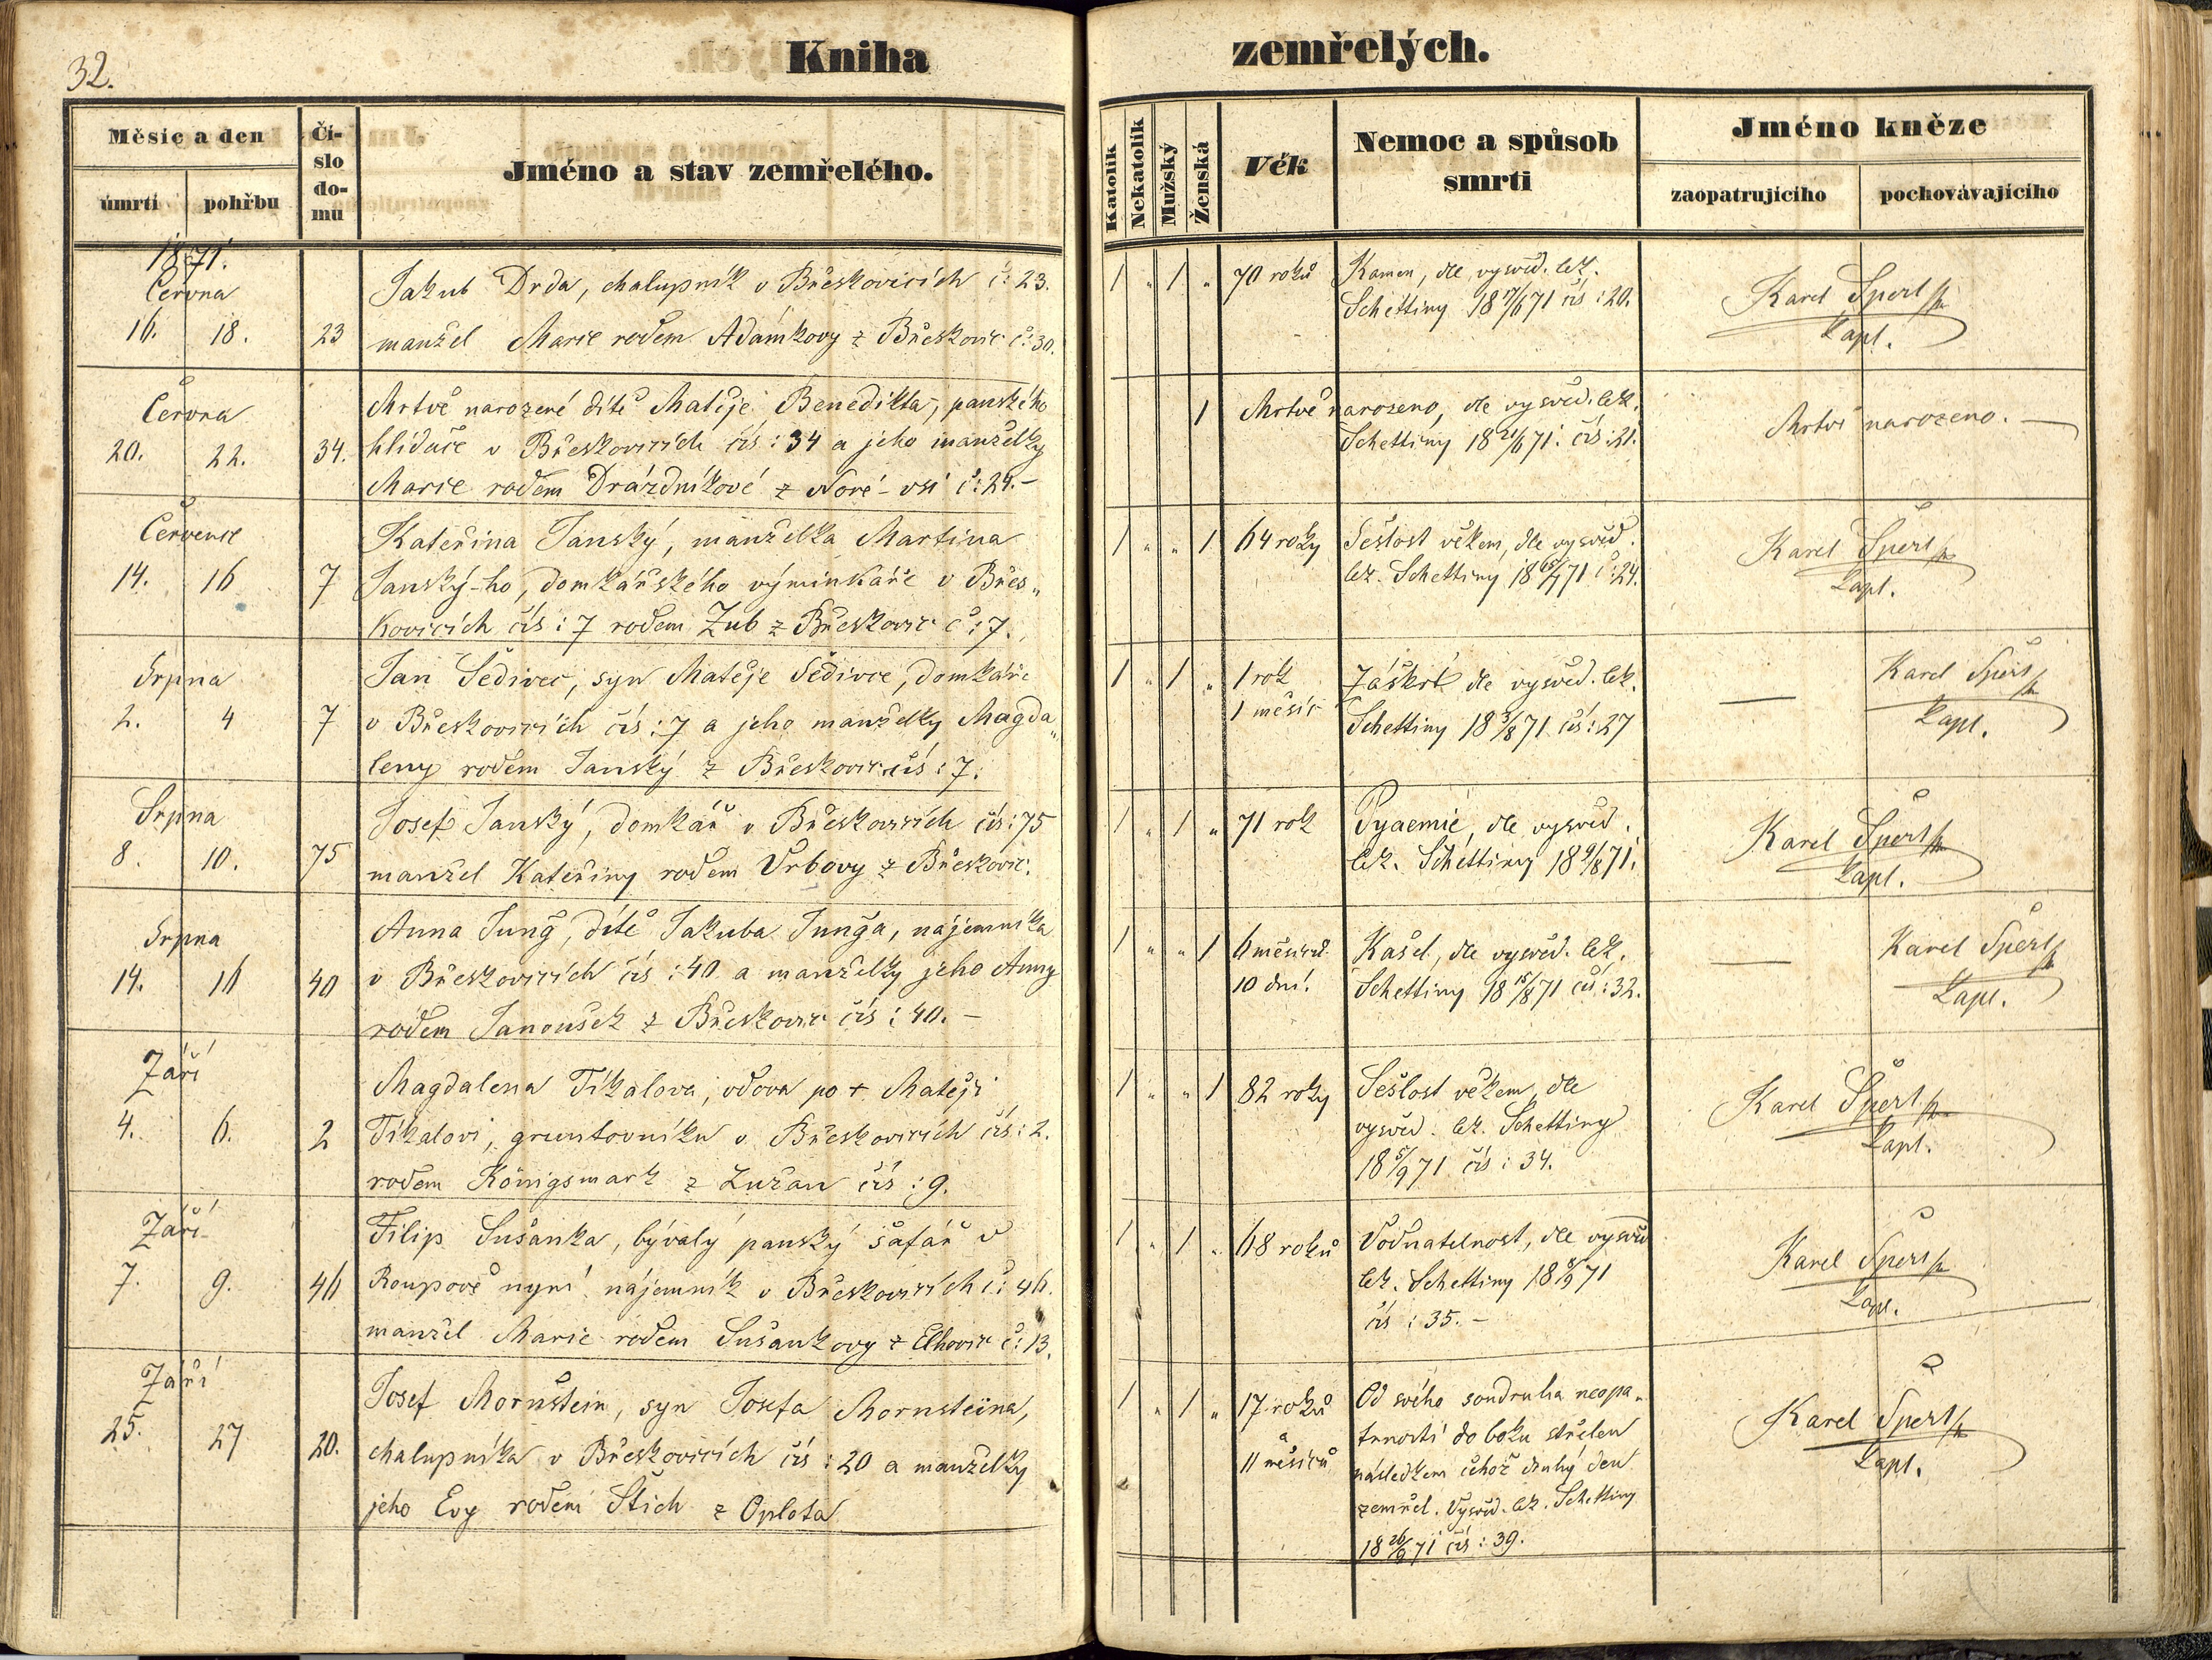 32.
Kniha zemřelých.
Měsíc a den
úmrtí
pohřbu
Čí-
slo
do-
mu
Jméno a stav zemřelého.
Katolík
Nekatolík
Mužský
Ženská
Věk
Nemoc a spůsob
smrti
Jméno kněze
zaopatrujícího
pochovávajícího
1871.
Června
16. 18. 23
Jakub Drda, chalupník v Břeskovicích č: 23.
manžel Marie rodem Adámkovy z Břeskovic č: 30.
1 „ 1 „ 70 roků
Kamen, dle vysvěd. lék.
Schettiny 18 17/6 71 čís: 20.
Karel Šperl
kapl.
Června
20. 22. 34.
Mrtvě narozené dítě Matěje Benedikta, panského
hlídače v Břeskovicích čís: 34 a jeho manželky
Marie rodem Drázdníkové z Nové-vsi č: 24.-
1
Mrtvě narozeno, dle vysvěd. lék.
Schettiny 18 21/6 71. čís: 21.
Mrtvě narozeno.
Července
14. 16 7
Kateřina Janský, manželka Martina
Janský-ho, domkářského výminkáře v Břes„
kovicích čís: 7 rodem Zub z Břeskovic č: 7.
1 „ „ 1 64 roky
Sešlost věkem, dle vysvěd.
lék. Schettiny 18 15/7 71 č: 24.
Karel Šperl
kapl.
Srpna
2. 4 7
Jan Šedivec, syn Matěje Šedivce, domkáře
v Břeskovicích čís: 7 a jeho manželky Magda„
leny rodem Janský z Břeskovic čís: 7.
1 „ 1 „ 1 rok
1 měsíc
Záškrt dle vysvěd. lék.
Schettiny 18 3/8 71 čís: 27
Karel Šperl
kapl.
Srpna
8. 10. 75
Josef Janský, domkář v Břeskovicích čís: 75
manžel Kateřiny rodem Vrbovy z Břeskovic.
1 „ 1 „ 71 rok
Pyaemie, dle vysvěd.
lék. Schettiny 18 9/8 71.
Karel Šperl
kapl.
Srpna
14. 16 40
Anna Jung, dítě Jakuba Junga, nájemníka
v Břeskovicích čís: 40 a manželky jeho Anny
rodem Janoušek z Břeskovic čís: 40.-
1 „ „ 1 6 měsíců
10 dní.
Kašel, dle vysvěd. lék.
Schettiny 18 15/8 71 čís: 32.
Karel Šperl
kapl.
Září
4. 6. 2
Magdalena Tikalova, vdova po + Matěji
Tikalovi, gruntovníku v Břeskovicích čís: 2.
rodem Königsmark z Lužan čís: 9.
1 „ „ 1 82 roky
Sešlost věkem, dle
vysvěd. lék. Schettiny
18 5/9 71 čís: 34.
Karel Šperl
kapl.
Září
7. 9. 46
Filip Sušanka, bývalý panský šafář v
Roupově nyní nájemník v Břeskovicích č: 46.
manžel Marie rodem Sušankovy z Elhovic č: 13.
1 „ 1 „ 68 roků
Vodnatelnost, dle vysvěd
lék. Schettiny 18 8/9 71
čís: 35.-
Karel Šperl
kapl.
Září
25. 27 20.
Josef Mornštein, syn Josefa Mornsteina,
chalupníka v Břeskovicích čís: 20 a manželky
jeho Evy rodem Štich z Oplota
1 „ 1 „ 17 roků
a
11 měsíců
Od svého soudruha neopa„
trností do boku střelen
následkem čehož druhý den
zemřel. Vysvěd. lék. Schettiny
18 26/9 71 čís: 39.
Karel Šperl
kapl.